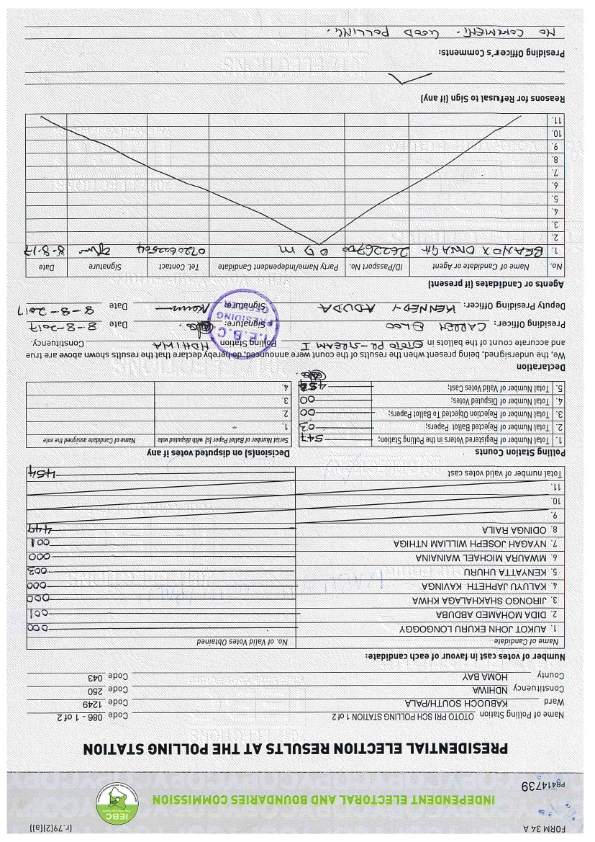 FORM 34 A
[r.79(2)(a)]
INDEPENDENT ELECTORAL AND BOUNDARIES COMMISSION
IEBC
PB414739
PRESIDENTIAL ELECTION RESULTS AT THE POLLING STATION
Name of Polling Station OTOTO PRI SCH POLLING STATION 1 of 2 Code 086 - 1 of 2
Ward KABUOCH SOUTH/PALA Code 1249
Constituency NDHIWA Code 250
County HOMA BAY Code 043
Number of votes cast in favour of each candidate:
Name of Candidate No. of Valid Votes Obtained
1. AUKOT JOHN EKURU LONGOGGY 000
2. DIDA MOHAMED ABDUBA 001
3. JIRONGO SHAKHALAGA KHWA 000
4. KALUYU JAPHETH KAVINGA 000
5. KENYATTA UHURU 003
6. MWAURA MICHAEL WAINAINA 000
7. NYAGAH JOSEPH WILLIAM NTHIGA 001
8. ODINGA RAILA 449
9.
10.
11.
Total number of valid votes cast 454
Polling Station Counts
1. Total Number of Registered Voters in the Polling Station; 547
2. Total Number of Rejected Ballot Papers;
3. Total Number of Rejection Objected To Ballot Papers; 00
4. Total Number of Disputed Votes; 00
5. Total Number of Valid Votes Cast;
Decision(s) on disputed votes if any
Serial Number of Ballot Paper (s) with disputed vote Name of Candidate assigned the vote
1. -
2
3.
4.
Declaration
We, the undersigned, being present when the results of the count were announced, do hereby declare that the results shown above are true
and accurate count of the ballots in OTOTO PR-STREAM I Polling Station NDHIWA Constituency.
Presiding Officer: Signature: Date 8-8-2017
Deputy Presiding Officer: KENNEDY ADUDA Signature Date 8-8-2017
I.E.B.C
PRESIDING
OFFICER
Agents or Candidates (if present)
No. Name of Candidate or Agent ID/Passport No. Party Name/Independent Candidate Tel. Contact Signature Date
1. 26226700 ODM 8-8-17
2.
3.
4.
5.
6.
7.
8.
9.
10.
11.
Reasons for Refusal to Sign (if any)
Presiding Officer's Comments:
NO COMMENT. GOOD POLLING.